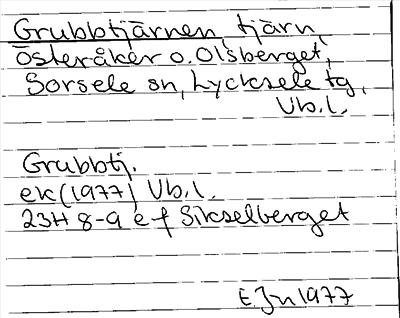 Grubbtjärnen, tjärn,
Österåker o. Olsberget,
Sorsele sn, Lycksele tg,
Vb.l.
Grubbtj.
ek(1977) Vb.l.
23H 8-9 e-f Sikselberget
EJn 1977